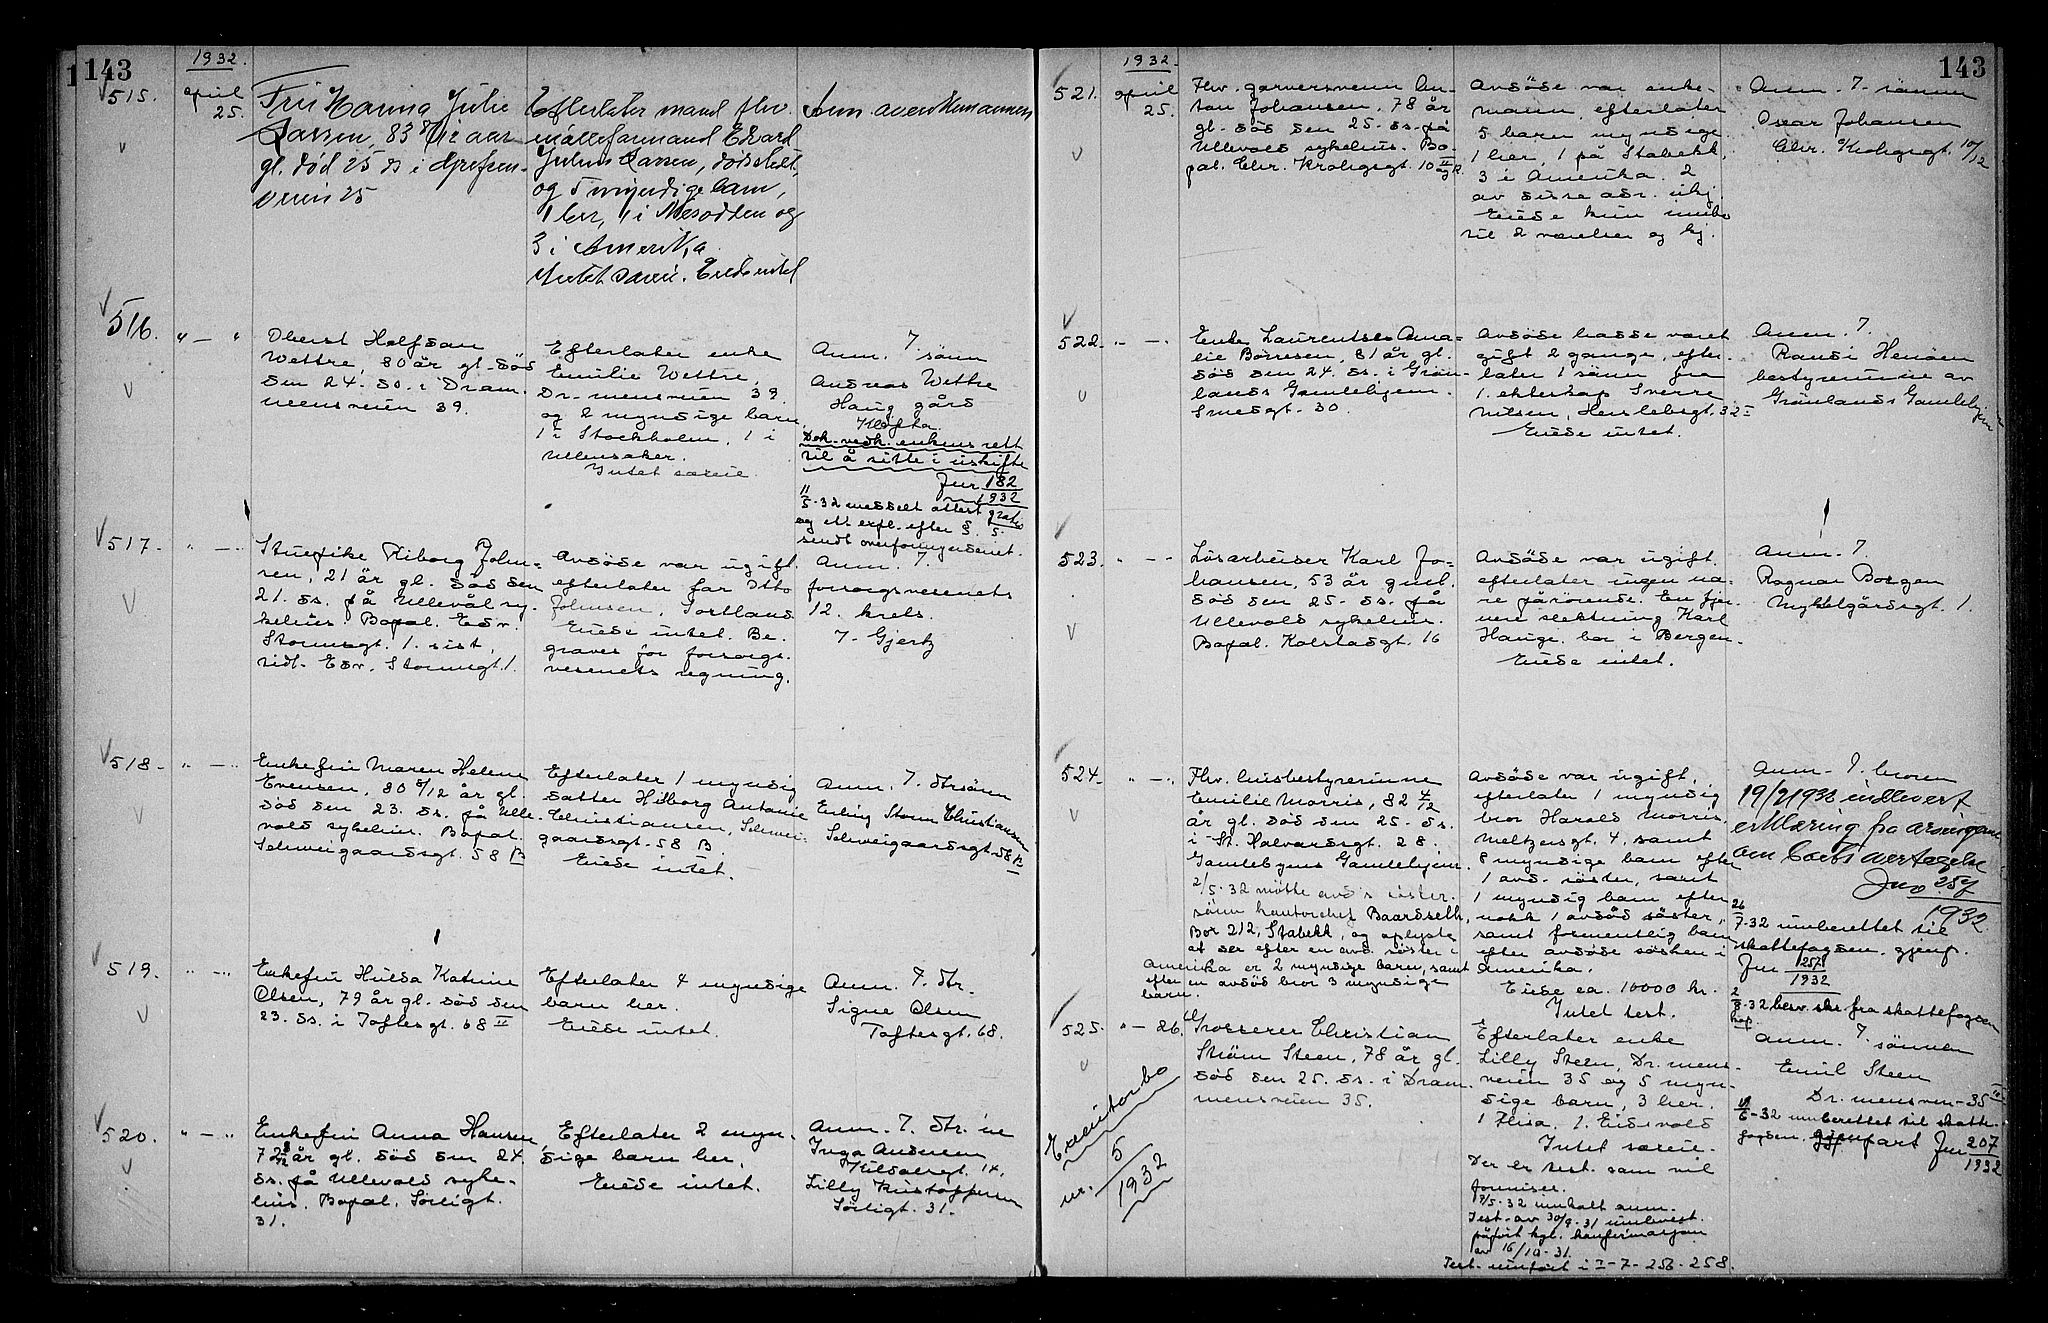 143
1932.
515.
april
25.
Fru Hanna Julie
Larsen, 83 8/12 aar
gl. død 25 ds i
veien 25
Efterlater mand fhv.
Edvard
Julius Larsen, dødsbolet,
og 5 myndige barn,
1 her, 1 i Nesodden og
3 i Amerika.
Intet særeie. Eiede intet
Anm. av enkemannen
516.
" — "
Oberst Halfdan
Wettre, 80 år gl. död
den 24. ds. i Dram-
mensveien 39.
Efterlater enke
Emilie Wettre,
Dr.mensveien 39.
og 2 myndige barn,
1 i Stockholm, 1 i
Ullensaker.
Intet særeie
Anm. 7 sönn
Andreas Wettre
Haug gård
Klöfta.
Dok. vedk. enkens rett
til å sitte i uskifte
Jnr 182
1932
11/5-32 meddelt attest gratis
og ett expl. efter § 5.
sendt overformynderiet.
517.
" — "
Stuepike Viborg John-
sen, 21 år gl. död den
21. ds. på Ullevål sy-
kehus. Bopal. Edv.
Stormsgt. 1. sist,
tidl. Edv. Stormsgt. 1.
Avdöde var ugift.
efterlater far Otto
Johnsen, Sortland
Eiede intet. Be-
graves for forsorgs-
vesenets regning.
Anm. 7.
forsorgsvesenets
12. krets.
7. Gjertz
518.
" — "
Enkefru Maren Helene
Evensen, 80 8/12 år gl.
död den 23. ds. på Ulle-
vals sykehus. Bopal.
Schweigaardsgt. 58 B
Efterlater 1 myndig
datter Hilborg Antonie
Christiansen, Schwei-
gaardsgt. 58 B.
Eiede intet.
Anm. 7. dtrsönn
Erling Storm Christiansen
Schweigaardsgt. 58 B
519.
" — "
Enkefru Hulda Katrine
Olsen, 79 år gl. död den
23. ds. i Toftesgt. 68 II
Efterlater 4 myndige
barn her.
Eiede intet.
Anm. 7. dtr.
Signe Olsen
Toftesgt. 68.
520.
" — "
Enkefru Anna Hansen
72 år gl. död den 24.
ds. på Ullevals syke-
hus. Bopal. Sörligt.
31.
Efterlater 2 myn-
dige barn her.
Eiede intet.
Anm. 7. dtr. ne
Inga Andersen
Kildalsgt. 14,
Lilly Kristoffersen
Sörligt. 31.
143
1932.
521.
april
25.
Fhv. garversvenn An-
ton Johansen, 78 år
gl. död den 25. ds. på
Ullevals sykehus. Bo-
pal. Chr. Krohgsgt. 10 II
Avdöde var enke-
mann, efterlater
5 barn myndige.
1 her, 1 på Stabekk,
3 i Amerika. 2
av disse adr. ukj.
Eiede kun innbo
til 2 værelser og kj.
Anm. 7. sönnen
Oscar Johansen
Chr. Krohgsgt. 10/12
522.
" — "
Enke Laurentse Ama-
lie Börresen, 81 år gl.
död den 24. ds. i Grön-
lands Gamlehjem.
Smedgt. 30.
Avdöde hadde været
gift 2 gange, efter-
later 1 sönn fra
1. ekteskap Sverre
Nilsen, Herslebsgt. 32 I
Eiede intet.
Anm. 7.
Randi Henöen
bestyrerinne av
Grönlands Gamlehjem
523.
" — "
Lösarbeider Karl Jo-
hansen, 53 år gml.
död den 25. ds. på
Ullevals sykehus.
Bopal. Kolstadgt. 16
Avdöde var ugift.
efterlater ingen næ-
re pårörende. En fjer-
nere slektning Karl
Hauge, bor i Bergen.
Eiede intet.
Anm. 7.
Ragnar Borgen
Nykelgårdsgt. 1.
524.
" — "
Fhv. husbestyrerinne
Emilie Morris, 82 4/12
år gl. död den 25. ds.
i St. Halvardsgt. 28.
Gamlebyens Gamlehjem.
2/5-32 mötte avd.s söster-
sönn kontorchef Baardseth,
Box 212, Stabekk, og oplyste
at der efter en avd. söster i
Amerika er 2 myndige barn, samt
efter en avdöd bror 3 myndige
barn.
Avdöde var ugift.
efterlater 1 myndig
bror Harald Morris,
Meltzersgt. 4, samt
8 myndige barn efter
1 avd. söster, samt
1 myndig barn efter
nokk 1 avdöd söster,
samt formentlig barn
efter avdöde sösken i
Amerika.
Eiede ca. 10000 kr.
Intet test.
Anm. 7. broren
19/7 1932 indlevert
erklæring fra arvingene
om boets overtagelse
Jnr 257
1932
26/7-32 innberettet til
skattefogden. gjenp.
Jnr 257
1932
2/8-32 besv. skr. fra skattefogden
525.
" — 26.
Grosserer Christian
Ström Steen, 78 år gl.
död den 25. ds. i Dram-
mensveien 35.
Executorbo
nr. 5
1932
Efterlater enke
Lilly Steen, Dr.mens-
veien 35 og 5 myn-
dige barn, 3 her,
1 Flisa, 1. Eidsvold
Intet særeie.
Der er test. som vil
fremvises.
7/5-32 innkalt anm.
Test. av 30/9-31 innlevert.
påfört kgl. konfirmasjon
av 16/10-31.
Test. innfört i I-7-256-258.
Anm. 7. sönnen
Emil Steen
Dr.mensvn. 35 II
-32 innberettet til skatte-
fogden. gjenpart Jnr 207
1932